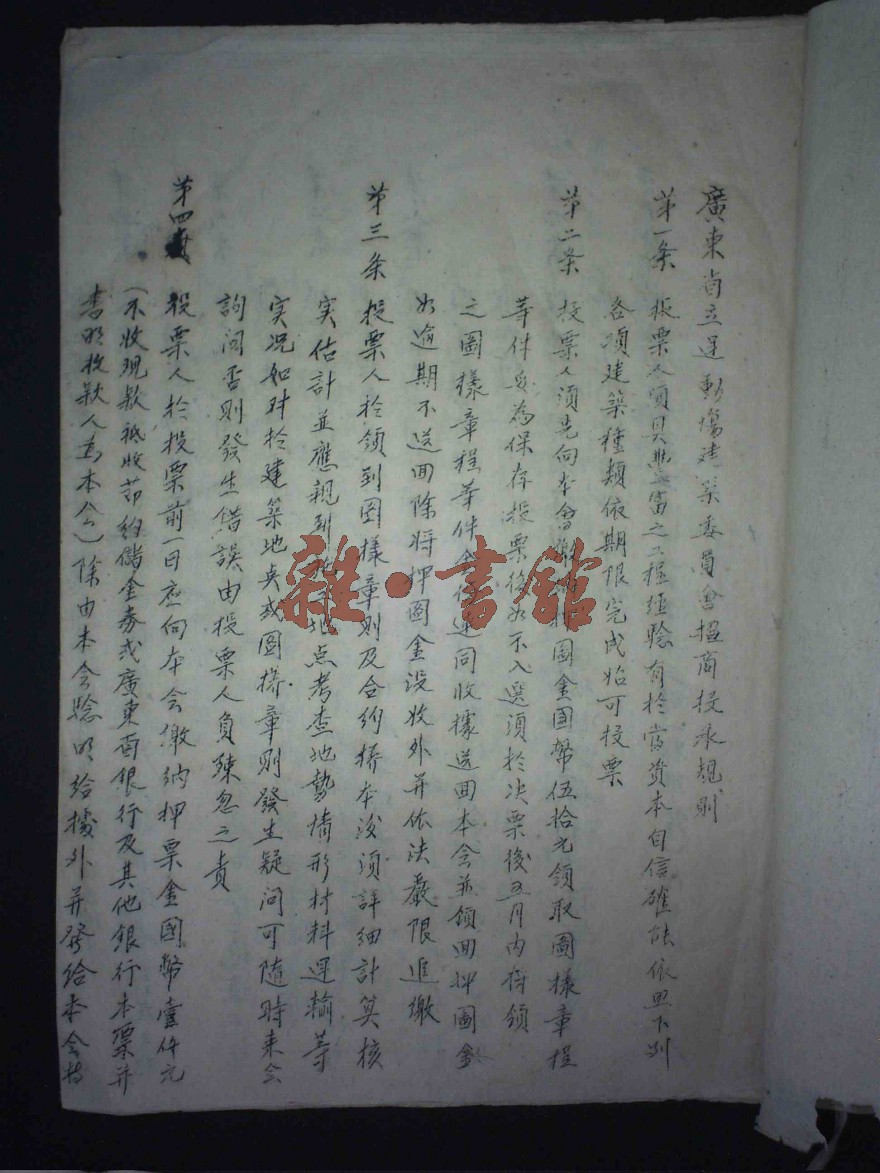 廣東省立運動場建築委員會招商投承規則
第一条 投票人須具豐富之工程經驗有於當資本自信確能依照下列
各項建築種類依期限完成始可投票
第二条 投票人須先向本會繳押圖金国幣伍拾元領取圖樣章程
等件為保存投票後如不入選須於决票後五月内将領
之圖樣章程等件連同收據送回本会並領回押圖金
如逾期不送回除将押圖金没收外并依法嚴限追繳
第三条 投票人於領到图樣章則及合約搭本後須詳細計算核
实估計並應親到地点考查地勢情形材料運輸等
实况如对於建築地点或图樣章則發生疑问可隨時来会
詢问否則發生错誤由投票人負疎忽之責
第四 投票人於投票前一日应向本会繳納押票金國幣壹仟元
(不收现款祗收节約儲金券或廣東省銀行及其他銀行本票并
書明收款人為本会)除由本会驗明给據外并發给本会
雜·書館